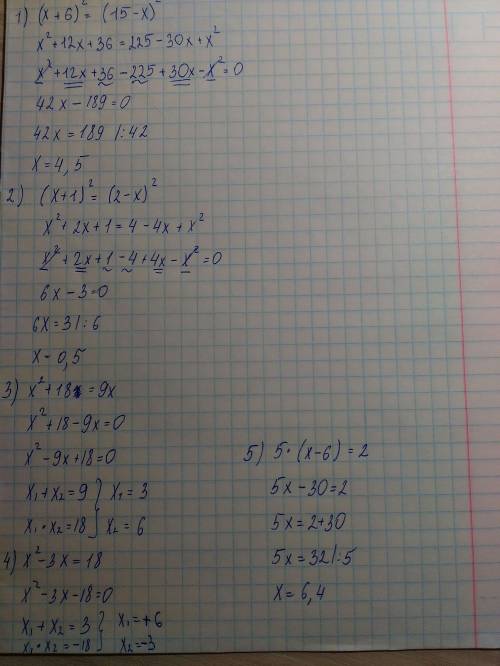 1) (x+6)² = (15-x)²
x²+12x+36=225-30x+x²
x²+12x+36-225+30x-x²=0
42x-189=0
42x=189 |:42
x=4,5
2) (x+1)² = (2-x)²
x²+2x+1=4-4x+x²
x²+2x+1-4+4x-x²=0
6x-3=0
6x=3|:6
x=0,5
3) x²+18=9x
x²+18-9x=0
x²-9x+18=0
x₁+x₂=9 } x₁=3
x₁·x₂=18 } x₂=6
4) x²-3x=18
x²-3x-18=0
x₁+x₂=3 } x₁=+6
x₁·x₂=-18 } x₂=-3
5) 5·(x-6)=2
5x-30=2
5x=2+30
5x=32|:5
x=6,4